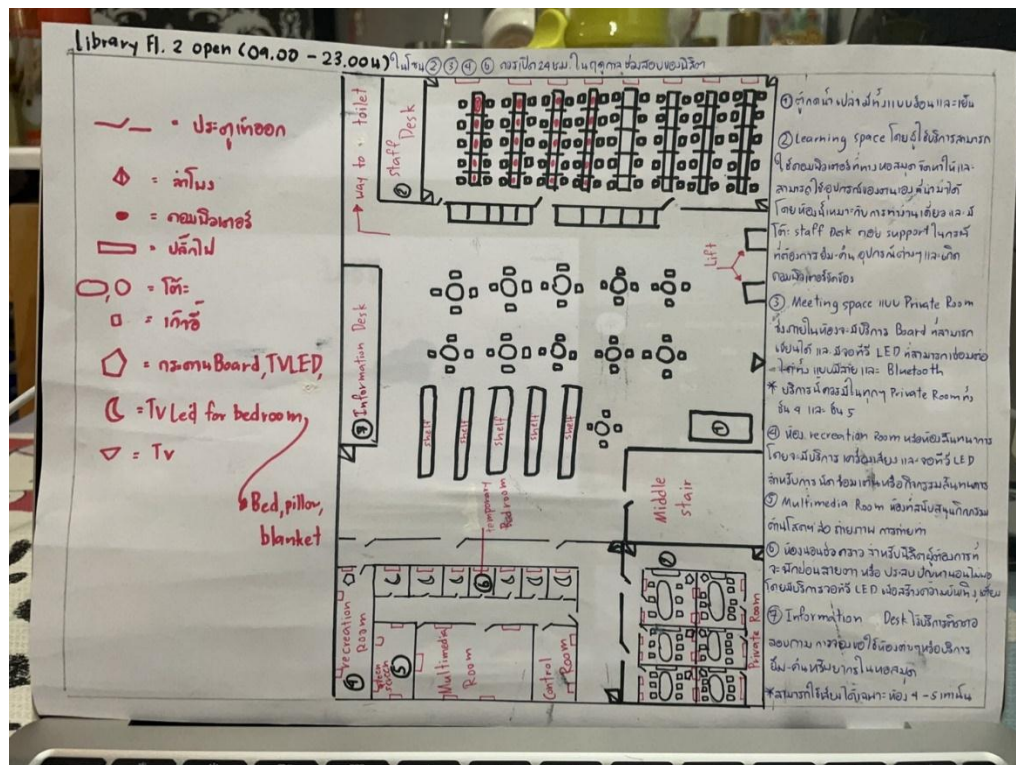 Library Fl. 2 open (09.00 - 23.00 น) ในโซน ② ③ ④ ⑥ ควรเปิด 24 ชม. ในฤดูกาลช่วงสอบของนิสิต
= ประตูเข้าออก
= ลำโพง
= คอมพิวเตอร์
= ปลั๊กไฟ
= โต๊ะ
= เก้าอี้
= กระดาน Board, TV LED,
= TV Led for bedroom,
= TV
Bed, pillow,
blanket
way to toilet
staff Desk
②
Information Desk
Lift
shelf
shelf
shelf
shelf
shelf
①
Middle stair
temporary Bedroom
⑥
recreation Room
④
green screen
⑤
Multimedia Room
Control Room
Private Room
① ตู้กดน้ำเปล่ามีทั้งแบบร้อนและเย็น
② Learning space โดยผู้ใช้บริการสามารถ
ใช้คอมพิวเตอร์ที่ทางหอสมุดจัดหาให้และ
สามารถใช้อุปกรณ์ของตนเองที่นำมาได้
โดยห้องนี้เหมาะกับการทำงานเดี่ยวและมี
โต๊ะ staff Desk คอย support ในกรณี
ที่ต้องการยืม-คืน อุปกรณ์ต่างๆ และเกิด
คอมพิวเตอร์ขัดข้อง
③ Meeting space แบบ Private Room
ซึ่งภายในห้องจะมีบริการ Board ที่สามารถ
เขียนได้ และมีจอทีวี LED ที่สามารถเชื่อมต่อ
ได้ทั้งแบบมีสายและ Bluetooth
* บริการนี้ควรมีในทุกๆ Private Room ทั้ง
ชั้น 4 และ ชั้น 5
④ ห้อง recreation Room หรือห้องสันทนาการ
โดยจะมีบริการ เครื่องเสียง และจอทีวี LED
สำหรับการ นัดซ้อมเต้นหรือกิจกรรมสันทนาการ
⑤ Multimedia Room ห้องที่สนับสนุนกิจกรรม
ด้านโสตฯ สื่อ ถ่ายภาพ การถ่ายทำ
⑥ ห้องนอนชั่วคราว สำหรับนิสิตผู้ต้องการที่
จะพักผ่อนสายตา หรือ ประสบปัญหานอนไม่พอ
โดยมีบริการจอทีวี LED เพื่อสร้างความบันเทิง
⑦ Information Desk ให้บริการ
สอบถาม การจองขอใช้ห้องต่างๆ หรือบริการ
ยืม-คืนทรัพยากรในหอสมุด
*สามารถใช้เสียงได้เฉพาะ ห้อง 4 - 5 เท่านั้น